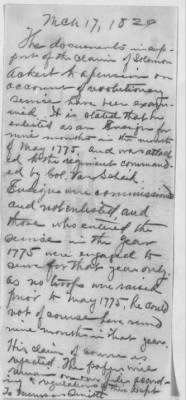 Mch 17, 1820
The documents in sup-
port of the claim of Solomon
Ackert to a pension on
account of revolutionary
service have been exam-
ined. It is stated that he
enlisted as an Ensign for
nine months in the month
of May 1775, and was attach
ed to the regiment command-
ed by Col. Van Schaick.
Ensigns are commissioned
and not enlisted and
those who entered the
service in the year
1775 were engaged to
serve for that year only:
as no troops were raised
prior to May 1775, he could
not of course have served
nine months in that year.
This claim of course is
rejected. The papers will
remain on our files accord-
ing to regulations of this Dept
To